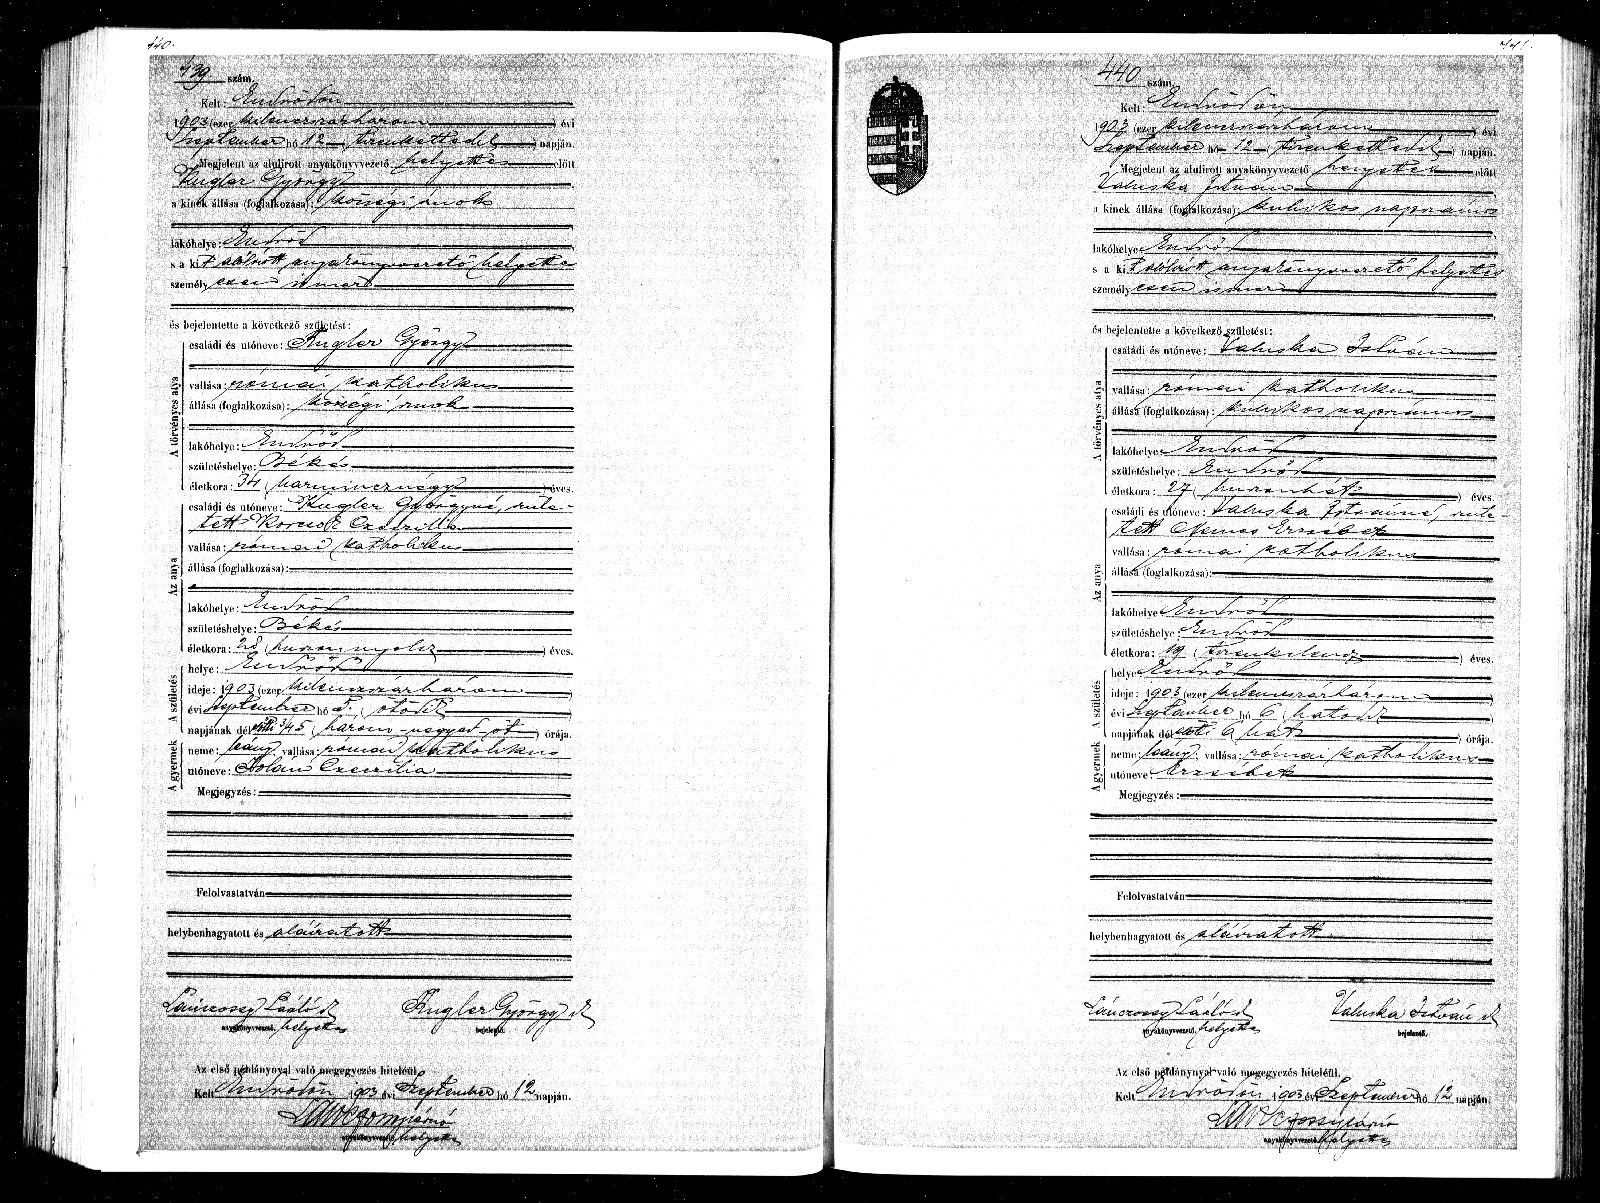 440.
439 szám.
Kelt: Endrődön
1903 (ezer kilenczszázhárom) évi
September hó 12 (tizenkettedik) napján.
Megjelent az alulirott anyakönyvvezető helyettes előtt
Kugler György
a kinek állása (foglalkozása): községi irnok
lakóhelye: Endrőd
s a kit alólirott anyakönyvvezető helyettes
személyesen ismer
és bejelentette a következő születést:
A törvényes atya
családi és utóneve: Kugler György
vallása: római katholikus
állása (foglalkozása): községi irnok
lakóhelye: Endrőd
születéshelye: Békés
életkora: 34 (harmincznégy) éves.
Az anya
családi és utóneve: Kugler Györgyné, szüle-
tett Czeczilia
vallása: római katholikus
állása (foglalkozása):
lakóhelye: Endrőd
születéshelye: Békés
életkora: 28 (huszonnyolcz) éves.
A születés
helye: Endrőd
ideje: 1903 (ezer kilenczszázhárom)
évi September hó 5. (ötödik)
napjának dél 3/45 (három negyed öt) órája.
A gyermek
neme: leány, vallása: római katholikus
utóneve: Jolán Czeczilia
Megjegyzés:
Felolvastatván
helybenhagyatott és aláiratott
László s.k. Kugler György s.k.
anyakönyvvezető. helyettes bejelentő.
Az első példánynyal való megegyezés hiteléül.
Kelt Endrődön 1903 évi September hó 12 napján.
anyakönyvvezető helyettes
441.
440 szám.
Kelt: Endrődön
1903 (ezer kilenczszázhárom) évi
September hó 12 (tizenkettedik) napján.
Megjelent az alulirott anyakönyvvezető helyettes előtt
Valuska István
a kinek állása (foglalkozása): kubikos napszámos
lakóhelye: Endrőd
s a kit alólirott anyakönyvvezető helyettes
személyesen ismer
és bejelentette a következő születést:
A törvényes atya
családi és utóneve: Valuska István
vallása: római katholikus
állása (foglalkozása): kubikos napszámos
lakóhelye: Endrőd
születéshelye: Endrőd
életkora: 27 (huszonhét) éves.
Az anya
családi és utóneve: Valuska Istvánné, szüle-
tett Nemes Erzsébet
vallása: római katholikus
állása (foglalkozása):
lakóhelye: Endrőd
születéshelye: Endrőd
életkora: 19 (tizenkilencz) éves.
A születés
helye: Endrőd
ideje: 1903 (ezer kilenczszázhárom)
évi September hó 6 (hatodik)
napjának délelőtti 6 (hat) órája.
A gyermek
neme: leány, vallása: római katholikus
utóneve: Erzsébet
Megjegyzés:
Felolvastatván
helybenhagyatott és aláiratott
László s.k. Valuska István s.k.
anyakönyvvezető. helyettes bejelentő.
Az első példánynyal való megegyezés hiteléül.
Kelt Endrődön 1903 évi September hó 12 napján.
anyakönyvvezető helyettes